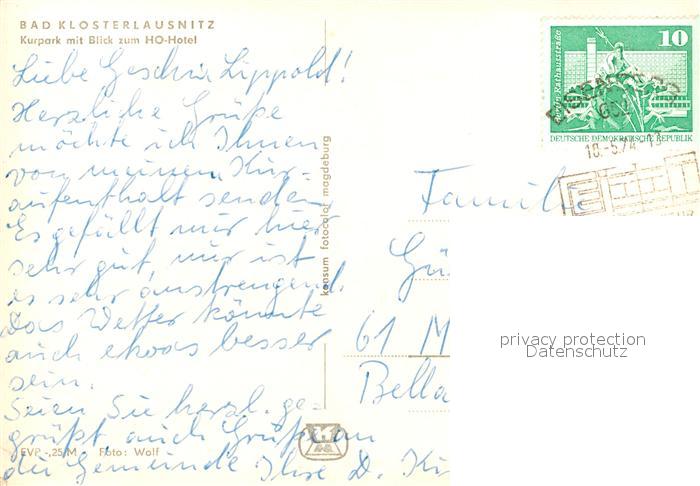 BAD KLOSTERLAUSNITZ
Kurpark mit Blick zum HO-Hotel
Liebe Geschw. Lippold!
Herzliche Grüße
möchte ich Ihnen
von meinem Kur-
aufenthalt senden.
Es gefällt mir hier
sehr gut, nur ist
es sehr anstrengend.
Das Wetter könnte
auch etwas besser
sein.
Seien Sie herzl. ge-
grüßt auch Grüße an
die Gemeinde Ihre D.
EVP -,25 M Foto: Wolf
konsum fotocolor magdeburg
10
Berlin, Rathausstraße
DEUTSCHE DEMOKRATISCHE REPUBLIK
EISENBERG
652
18.-5.74
Familie
61 M
Bella
privacy protection
Datenschutz